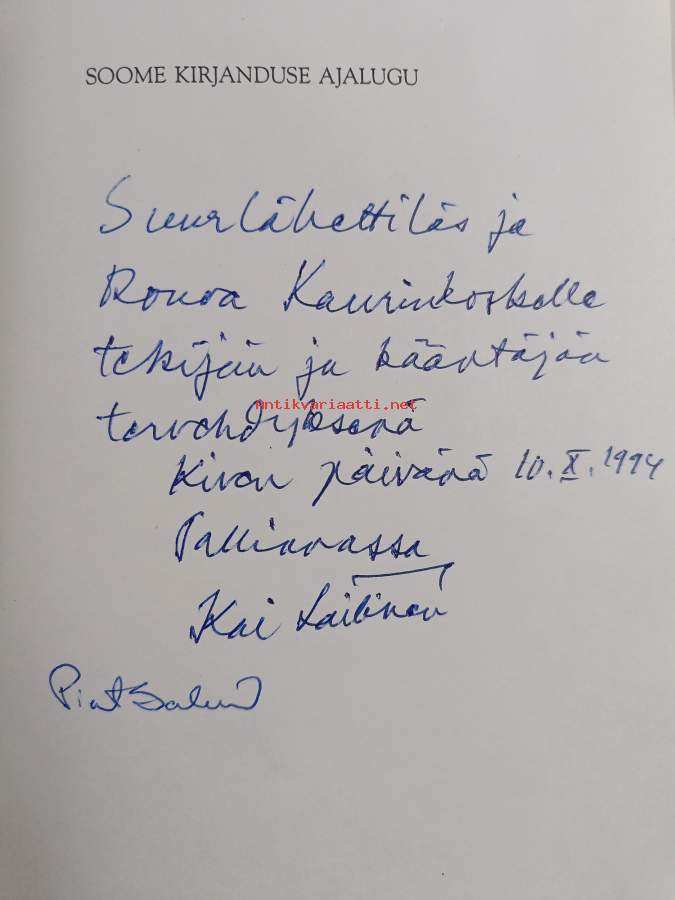 SOOME KIRJANDUSE AJALUGU
Suurlähettiläs ja
Rouva Kaurinkoskelle
tekijän ja kääntäjän
Antikvariaatti.net
tervehdyksenä
Kiven päivänä 10.X.1994
Tallinnassa
Kai Laitinen
Piret Saluri